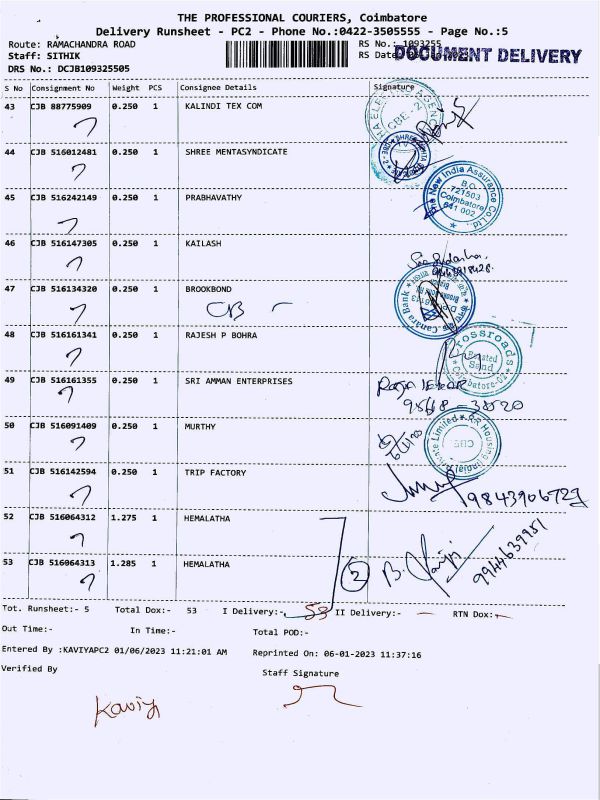 THE PROFESSIONAL COURIERS, Coimbatore
Delivery Runsheet - PC2 - Phone No.:0422-3505555 - Page No.:5
Route: RAMACHANDRA ROAD RS No.: 1093255
Staff: SITHIK RS Date DOCUMENT DELIVERY
DRS No.: DCJB109325505
S No Consignment No Weight PCS Consignee Details Signature
43 CJB 88775909 0.250 1 KALINDI TEX COM
44 CJB 516012481 0.250 1 SHREE MENTASYNDICATE
45 CJB 516242149 0.250 1 PRABHAVATHY
The New India Assurance Co Ltd
B.O.
721503
Coimbatore
641 002
46 CJB 516147305 0.250 1 KAILASH
47 CJB 516134320 0.250 1 BROOKBOND
CB
Canara Bank
48 CJB 516161341 0.250 1 RAJESH P BOHRA
Crossroads
Coimbatore-02
49 CJB 516161355 0.250 1 SRI AMMAN ENTERPRISES
50 CJB 516091409 0.250 1 MURTHY
51 CJB 516142594 0.250 1 TRIP FACTORY
9843906729
52 CJB 516064312 1.275 1 HEMALATHA
53 CJB 516064313 1.285 1 HEMALATHA
2
9944639951
Tot. Runsheet:- 5 Total Dox:- 53 I Delivery:- 53 II Delivery:- — RTN Dox:-
Out Time:- In Time:- Total POD:-
Entered By :KAVIYAPC2 01/06/2023 11:21:01 AM Reprinted On: 06-01-2023 11:37:16
Verified By Staff Signature
Kaviy